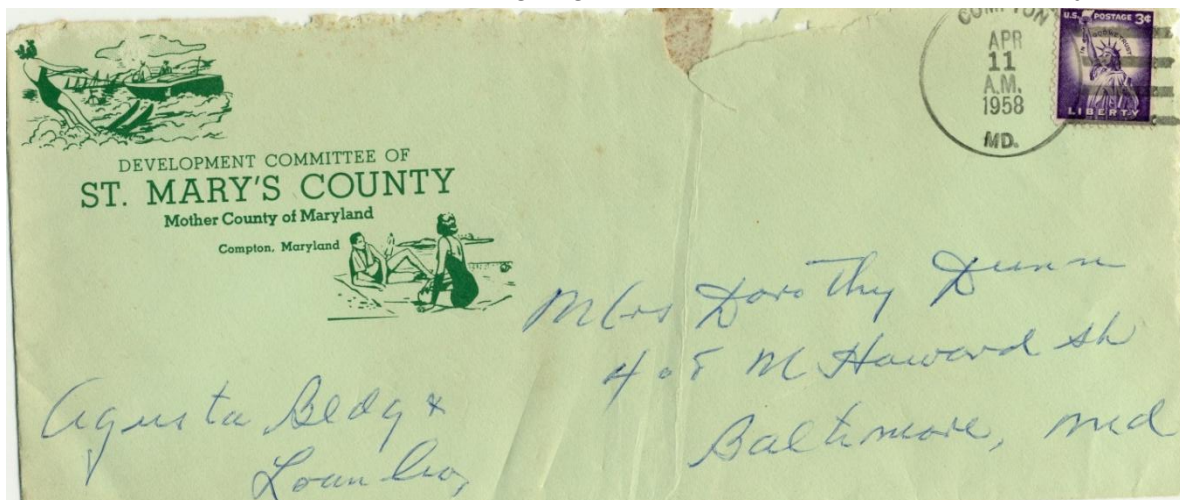 DEVELOPMENT COMMITTEE OF
ST. MARY'S COUNTY
Mother County of Maryland
Compton, Maryland
COMPTON
APR
11
A.M.
1958
MD.
U.S. POSTAGE 3¢
IN GOD WE TRUST
LIBERTY
Mrs Dorothy Dunn
408 N Howard St
Baltimore, Md
Agusta Bldg &
Loan Co,